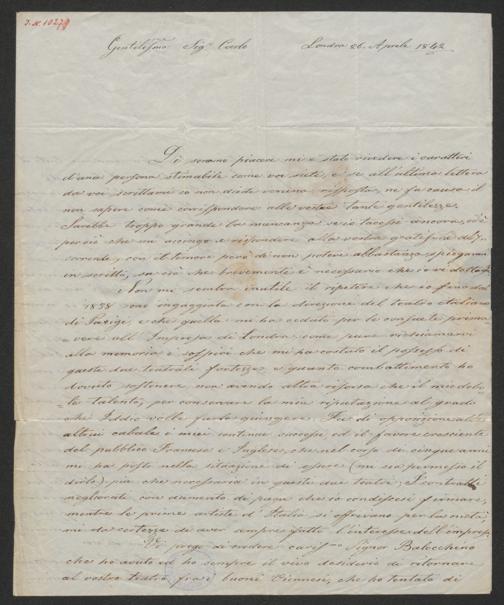 Gentilissimo Sigr. Carlo
Londra 26. Aprile 1842
Di sommo piacere mi è stato rivedere i caratteri
d'una persona stimabile come voi siete, e se all'ultima lettera
da voi scrittami io non diedi veruna risposta, ne fu causa il
non sapere come corrispondere alle vostre tante gentilezze.
Sarebbe troppo grande la mancanza se io tacessi ancora, ed è
perciò che mi accingo a rispondere alla vostra gratissima del
corrente, con il timore però di non potere abbastanza spiegarmi
in scritto, su ciò che brevemente è necessario che io vi dica
Non mi sembra inutile il ripetere che io fino dal
1838 sono ingaggiata con la direzione del teatro Italiano
di Parigi, e che quella mi ha ceduto per le consuete prima-
vere all' Impresa di Londra come pure richiamarvi
alla memoria i soffrirsi che mi ha costato il possesso di
queste due teatrali fortezze e quanto combattimento ho
dovuto sostenere non avendo altra risposa che il mio debo-
le talento, per conservare la mia riputazione al grado
che Iddio volle farla giungere. Fu di opposizione alle
altrui cabale i miei continui successi ed il favore crescente
del pubblico Francese e Inglese, che nel corso di cinque anni
mi ha posto nella situazione di essere (mi sia permesso il
dirlo) più che necessaria in queste due teatri; I contratti
migliorati con aumento di paga che io condiscesi firmare,
mentre le prime artiste d'Italia si offrivano per la metà,
mi dà certezza di aver sempre fatti l'interesse dell'impresa
Vi prego di credere carissmo Signor Balocchino
che ho avuto ed ho sempre il vivo desiderio di ritornare
al vostro teatro, fra i buoni Viennesi, che ho tentato di